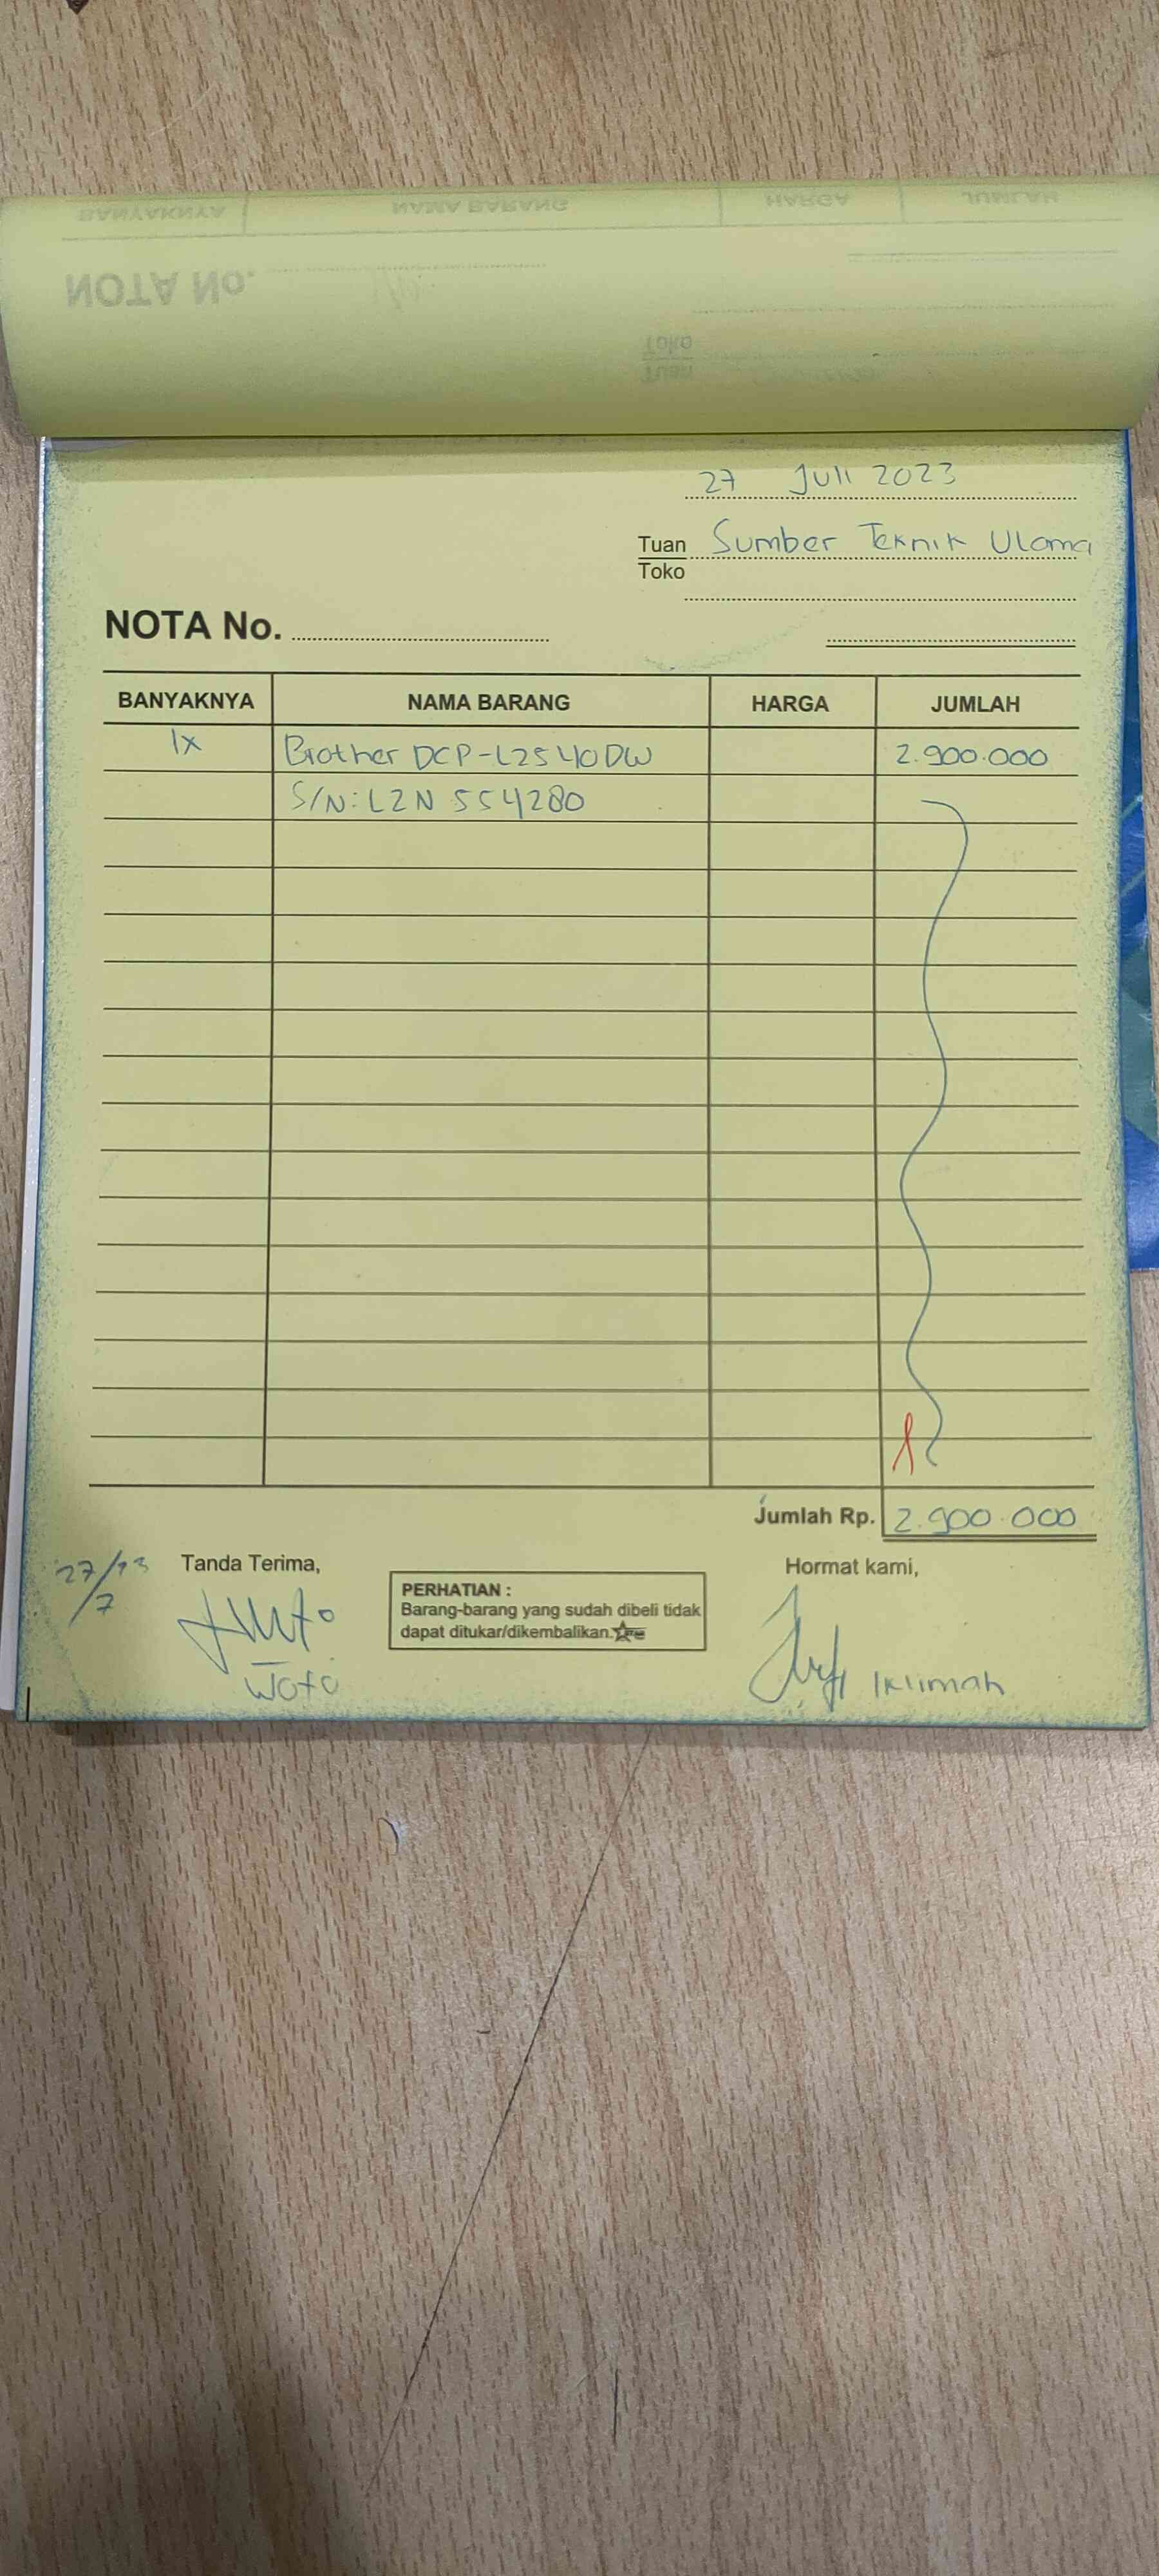 BANYAKNYA NAMA BARANG HARGA JUMLAH
NOTA No.
Toko
Tuan
27 Juli 2023
Tuan Sumber Teknik Utama
Toko
NOTA No.
BANYAKNYA NAMA BARANG HARGA JUMLAH
1x Brother DCP-L2540DW 2.900.000
S/N: L2N 554280
Jumlah Rp. 2.900.000
27/7 23 Tanda Terima, Hormat kami,
PERHATIAN :
Barang-barang yang sudah dibeli tidak
dapat ditukar/dikembalikan.
Woto
Iklimah